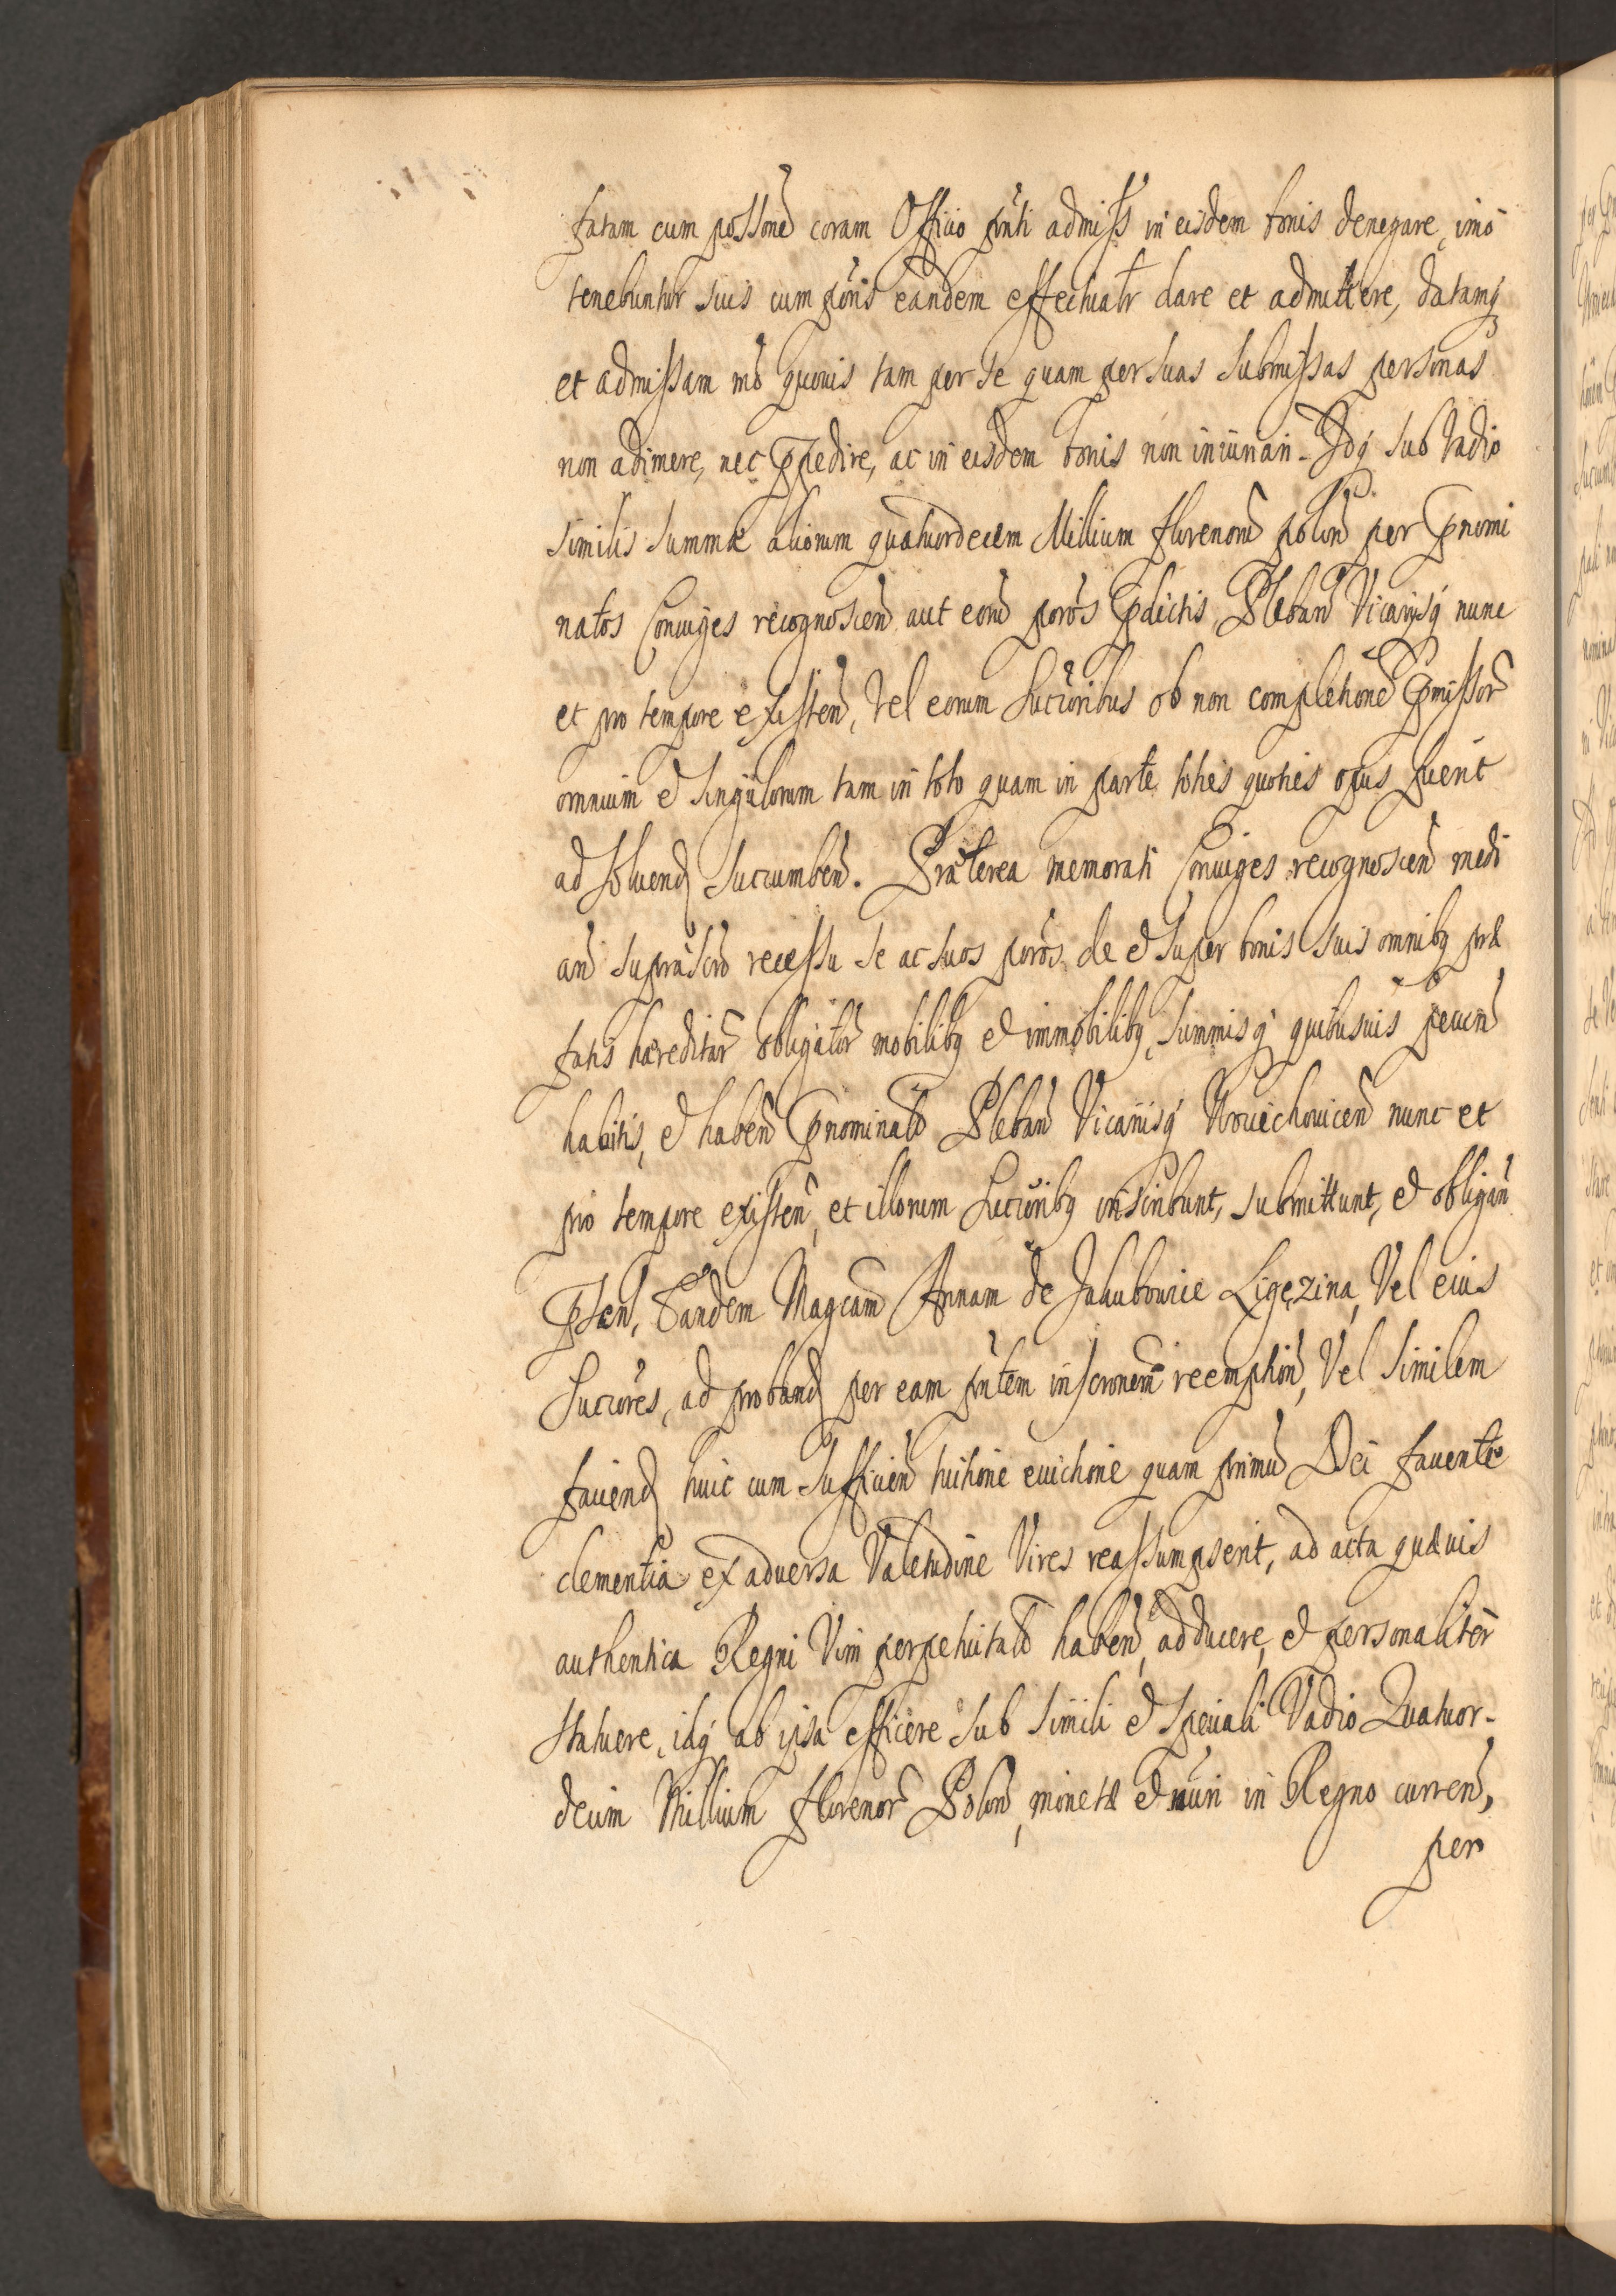 fatam cum possone͂ coram Officio pn̄ti admiss in eisdem bonis denegare, imo
tenebuntur suis cum po͂ris eandem effectuatr dare et admittere, datamq́
et admissam mō quouis tam per se quam per suas submissas personas
non adimere, nec ꝑpedire, ac in eisdem bonis non iniuriari. Idq́ sub Vadio
similis summæ aliorum quatuordecem Millium florenorū polon̄ per ꝑnomi
natos Coniuges recognoscen̄ aut eorū po͂ros ꝑdictis Pleban̄ Vicarijsq́ nunc
et pro tempore existen̄, Vel eorum Succ͂oribus ob non completionē ꝑmissor͂
omnium et singulorum tam in toto quam in parte toties quoties opus fuerit
ad soluend Succumben̄. Præterea memorati Coniuges recognoscen̄ medi
an̄ suprascr̄o recessu se ac suos po͂ros de et super bonis suis omnibq præ
fatis hæreditar͂ obligator͂ mobilibq et immobilibq, summisq́ quibusuis pecun̄
habitis, et haben̄ ꝑnominatō Pleban̄ Vicarijsq́ Woiechouicen̄ nunc et
pro tempore existen̄, et illorum Succ͂oribq inscribunt, submittunt, et obligan̄
ꝑsen̄, Eandem Magcam̄ Annam de Jakubouice Ligęzina, Vel eius
Succ͂ores, ad proband per eam pn̄tem inscr͂onem reemption̄, Vel similem
faciend huic cum sufficien̄ tuitione euictione quam primū Dei fauente
clementia ex aduersa Valetudine Vires reassumpserit, ad acta quæuis
authentica Regni Vim perpetuitatō haben̄, adducere, et personaliter
statuere, idq́ ab ipsa efficere sub simili et speciali Vadio Quatuor-
decim Millium florenor͂ Polon̄, monetæ et nūri in Regno curren̄,
per